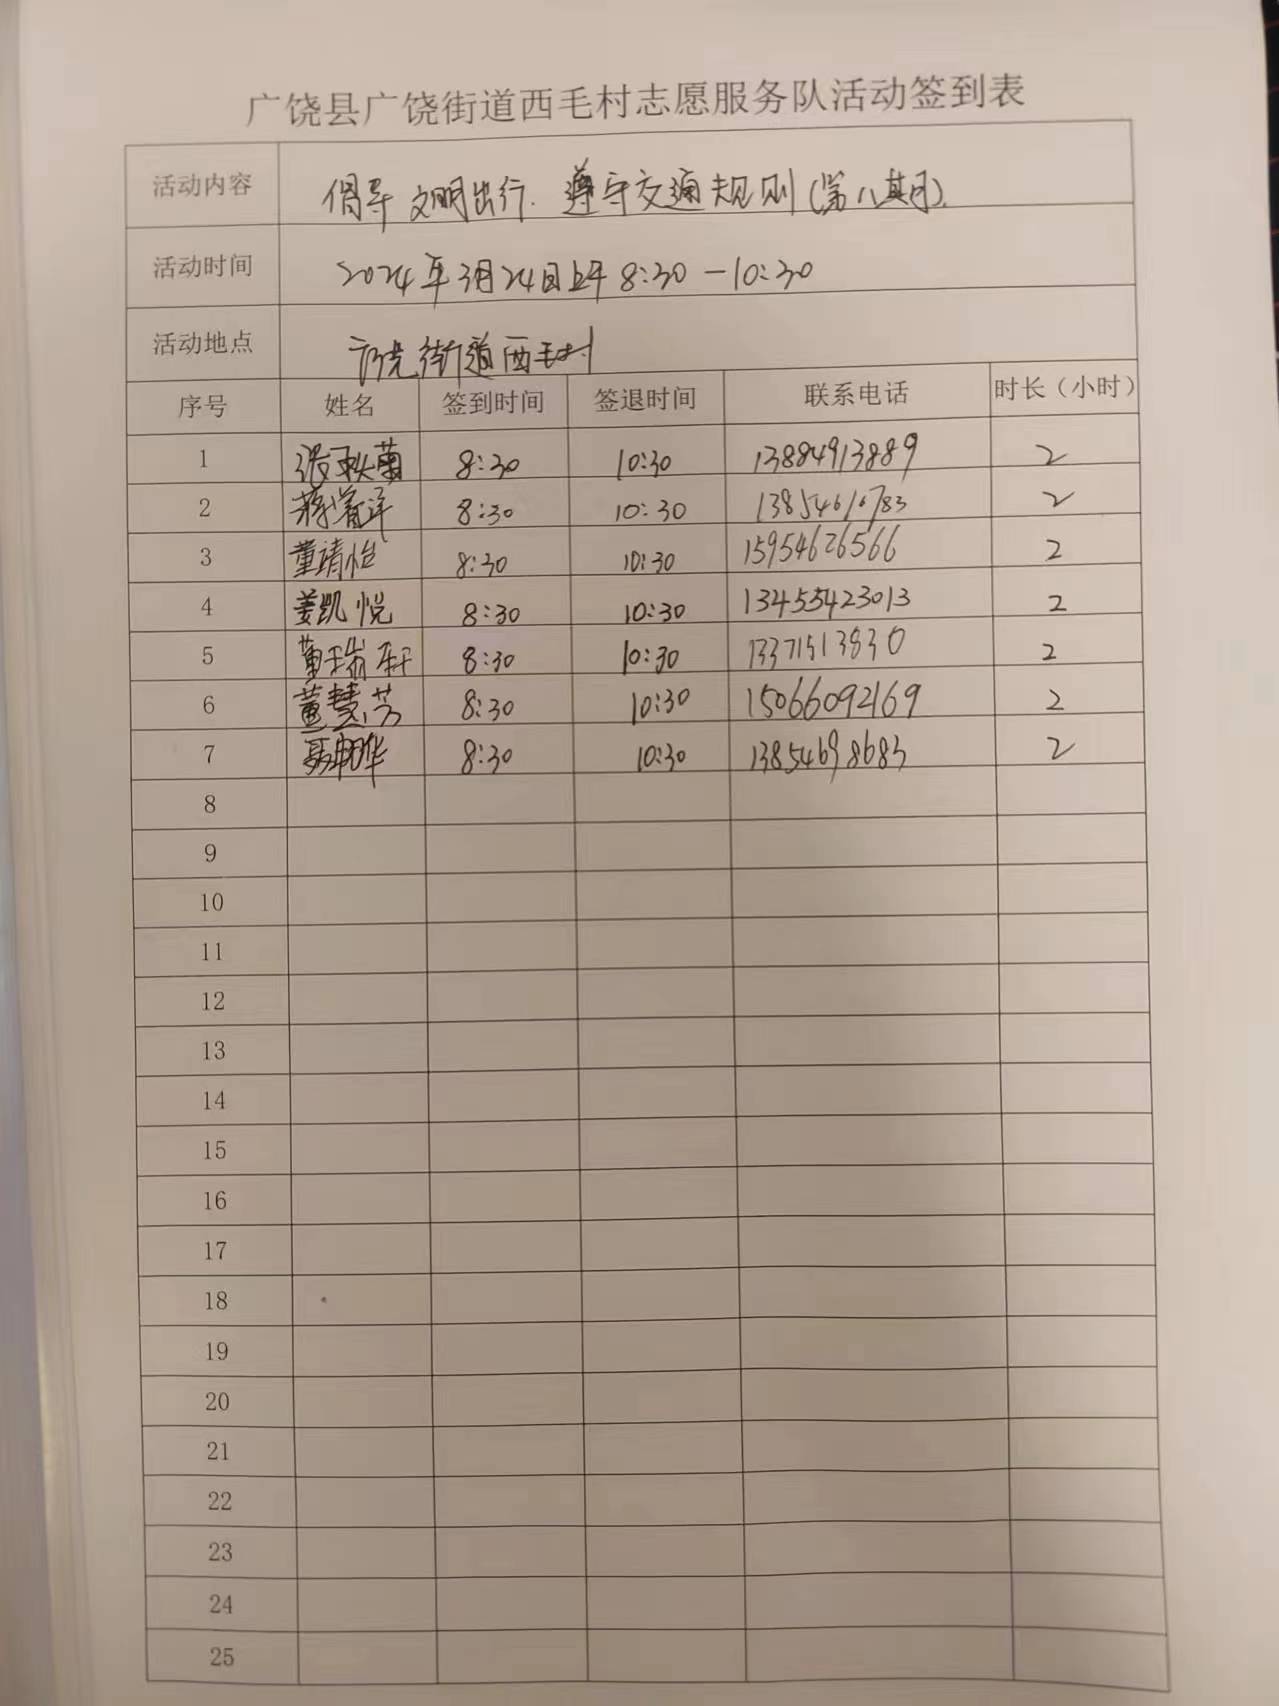 广饶县广饶街道西毛村志愿服务队活动签到表
活动内容 倡导文明出行.遵守交通规则(第八期).
活动时间 2024年3月24日上午8:30-10:30
活动地点 广饶街道西毛村
序号 姓名 签到时间 签退时间 联系电话 时长(小时)
1 张秋菊 8:30 10:30 13884913889 2
2 8:30 10:30 13854616783 2
3 董靖怡 8:30 10:30 15954626566 2
4 姜凯悦 8:30 10:30 13455423013 2
5 董瑞轩 8:30 10:30 13371513830 2
6 董慧芳 8:30 10:30 15066092169 2
7 8:30 10:30 13854698683 2
8
9
10
11
12
13
14
15
16
17
18
19
20
21
22
23
24
25